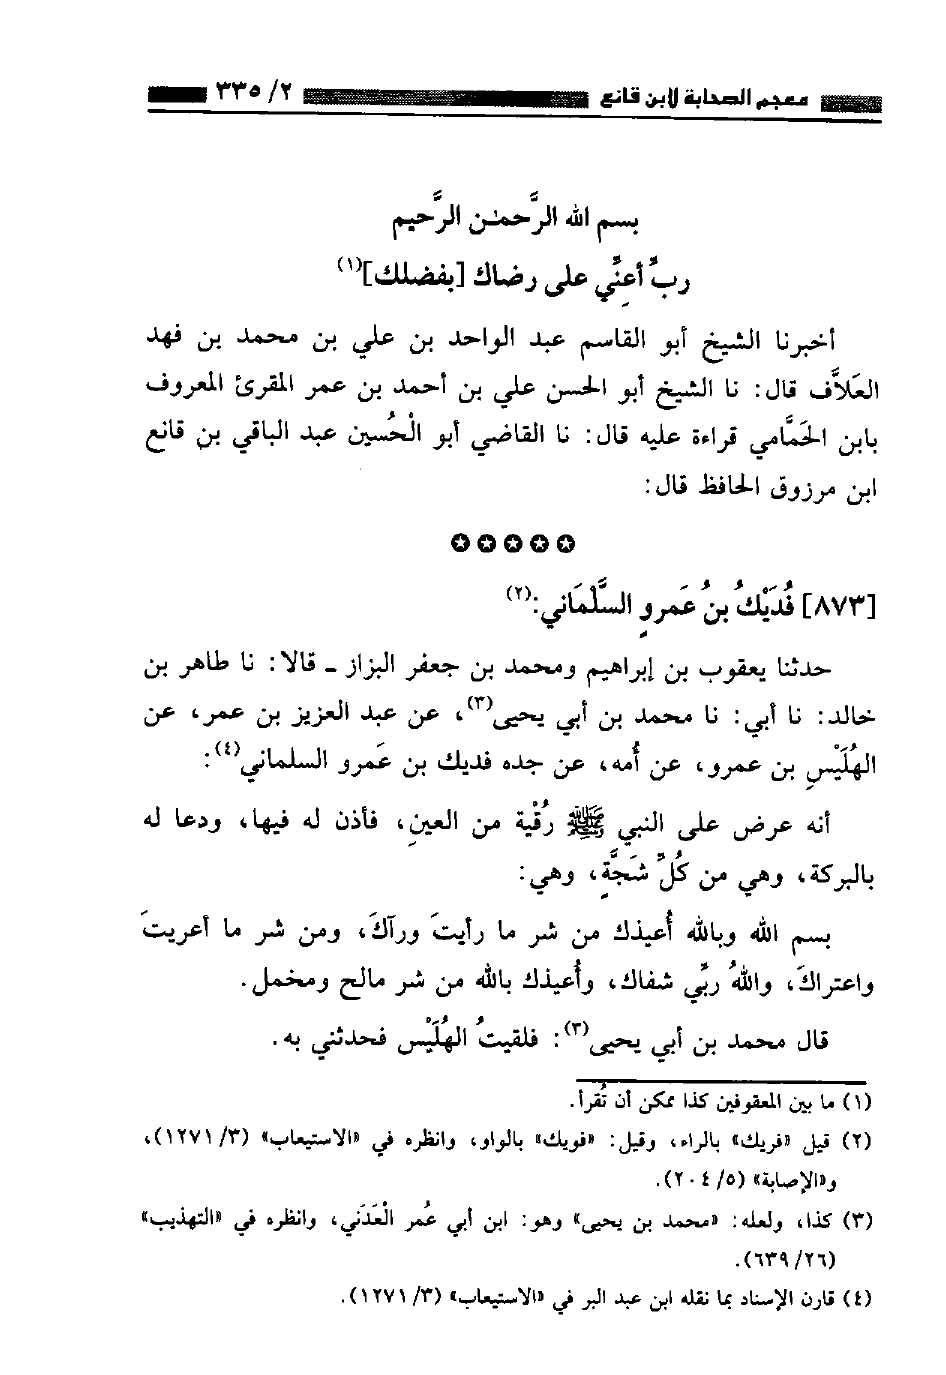 معجم الصحابة لابن قانع ٢/ ٣٣٥
بسم الله الرَّحمن الرَّحيم
ربِّ أعِنِّي على رضاك [بفضلك](١)
أخبرنا الشيخ أبو القاسم عبد الواحد بن علي بن محمد بن فهد
العَلاَّف قال: نا الشيخ أبو الحسن علي بن أحمد بن عمر المقرئ المعروف
بابن الحَمَّامي قراءة عليه قال: نا القاضي أبو الْحُسين عبد الباقي بن قانع
ابن مرزوق الحافظ قال:
[٨٧٣] فُدَيْكُ بنُ عَمروٍ السَّلْمَاني:(٢)
حدثنا يعقوب بن إبراهيم ومحمد بن جعفر البزاز ـ قالا: نا طاهر بن
خالد: نا أبي: نا محمد بن أبي يحيى(٣)، عن عبد العزيز بن عمر، عن
الهُلَيْسِ بن عمرو، عن أُمه، عن جده فديك بن عَمرو السلماني(٤):
أنه عرض على النبي ﷺ رُقْية من العينِ، فأذن له فيها، ودعا له
بالبركة، وهي من كُلِّ شَجَّةٍ، وهي:
بسم الله وبالله أُعيذك من شر ما رأيتَ ورآكَ، ومن شر ما أعريتَ
واعتراكَ، واللهُ ربِّي شفاك، وأُعيذك بالله من شر مالح ومخمل.
قال محمد بن أبي يحيى(٣): فلقيتُ الهُلَيْس فحدثني به.
(١) ما بين المعقوفين كذا ممكن أن تُقرأ.
(٢) قيل «فريك» بالراء، وقيل: «فويك» بالواو، وانظره في «الاستيعاب» (٣/ ١٢٧١)،
و«الإصابة» (٥/ ٢٠٤).
(٣) كذا، ولعله: «محمد بن يحيى» وهو: ابن أبي عُمر الْعَدَني، وانظره في «التهذيب»
(٢٦/ ٦٣٩).
(٤) قارن الإسناد بما نقله ابن عبد البر في «الاستيعاب» (٣/ ١٢٧١).